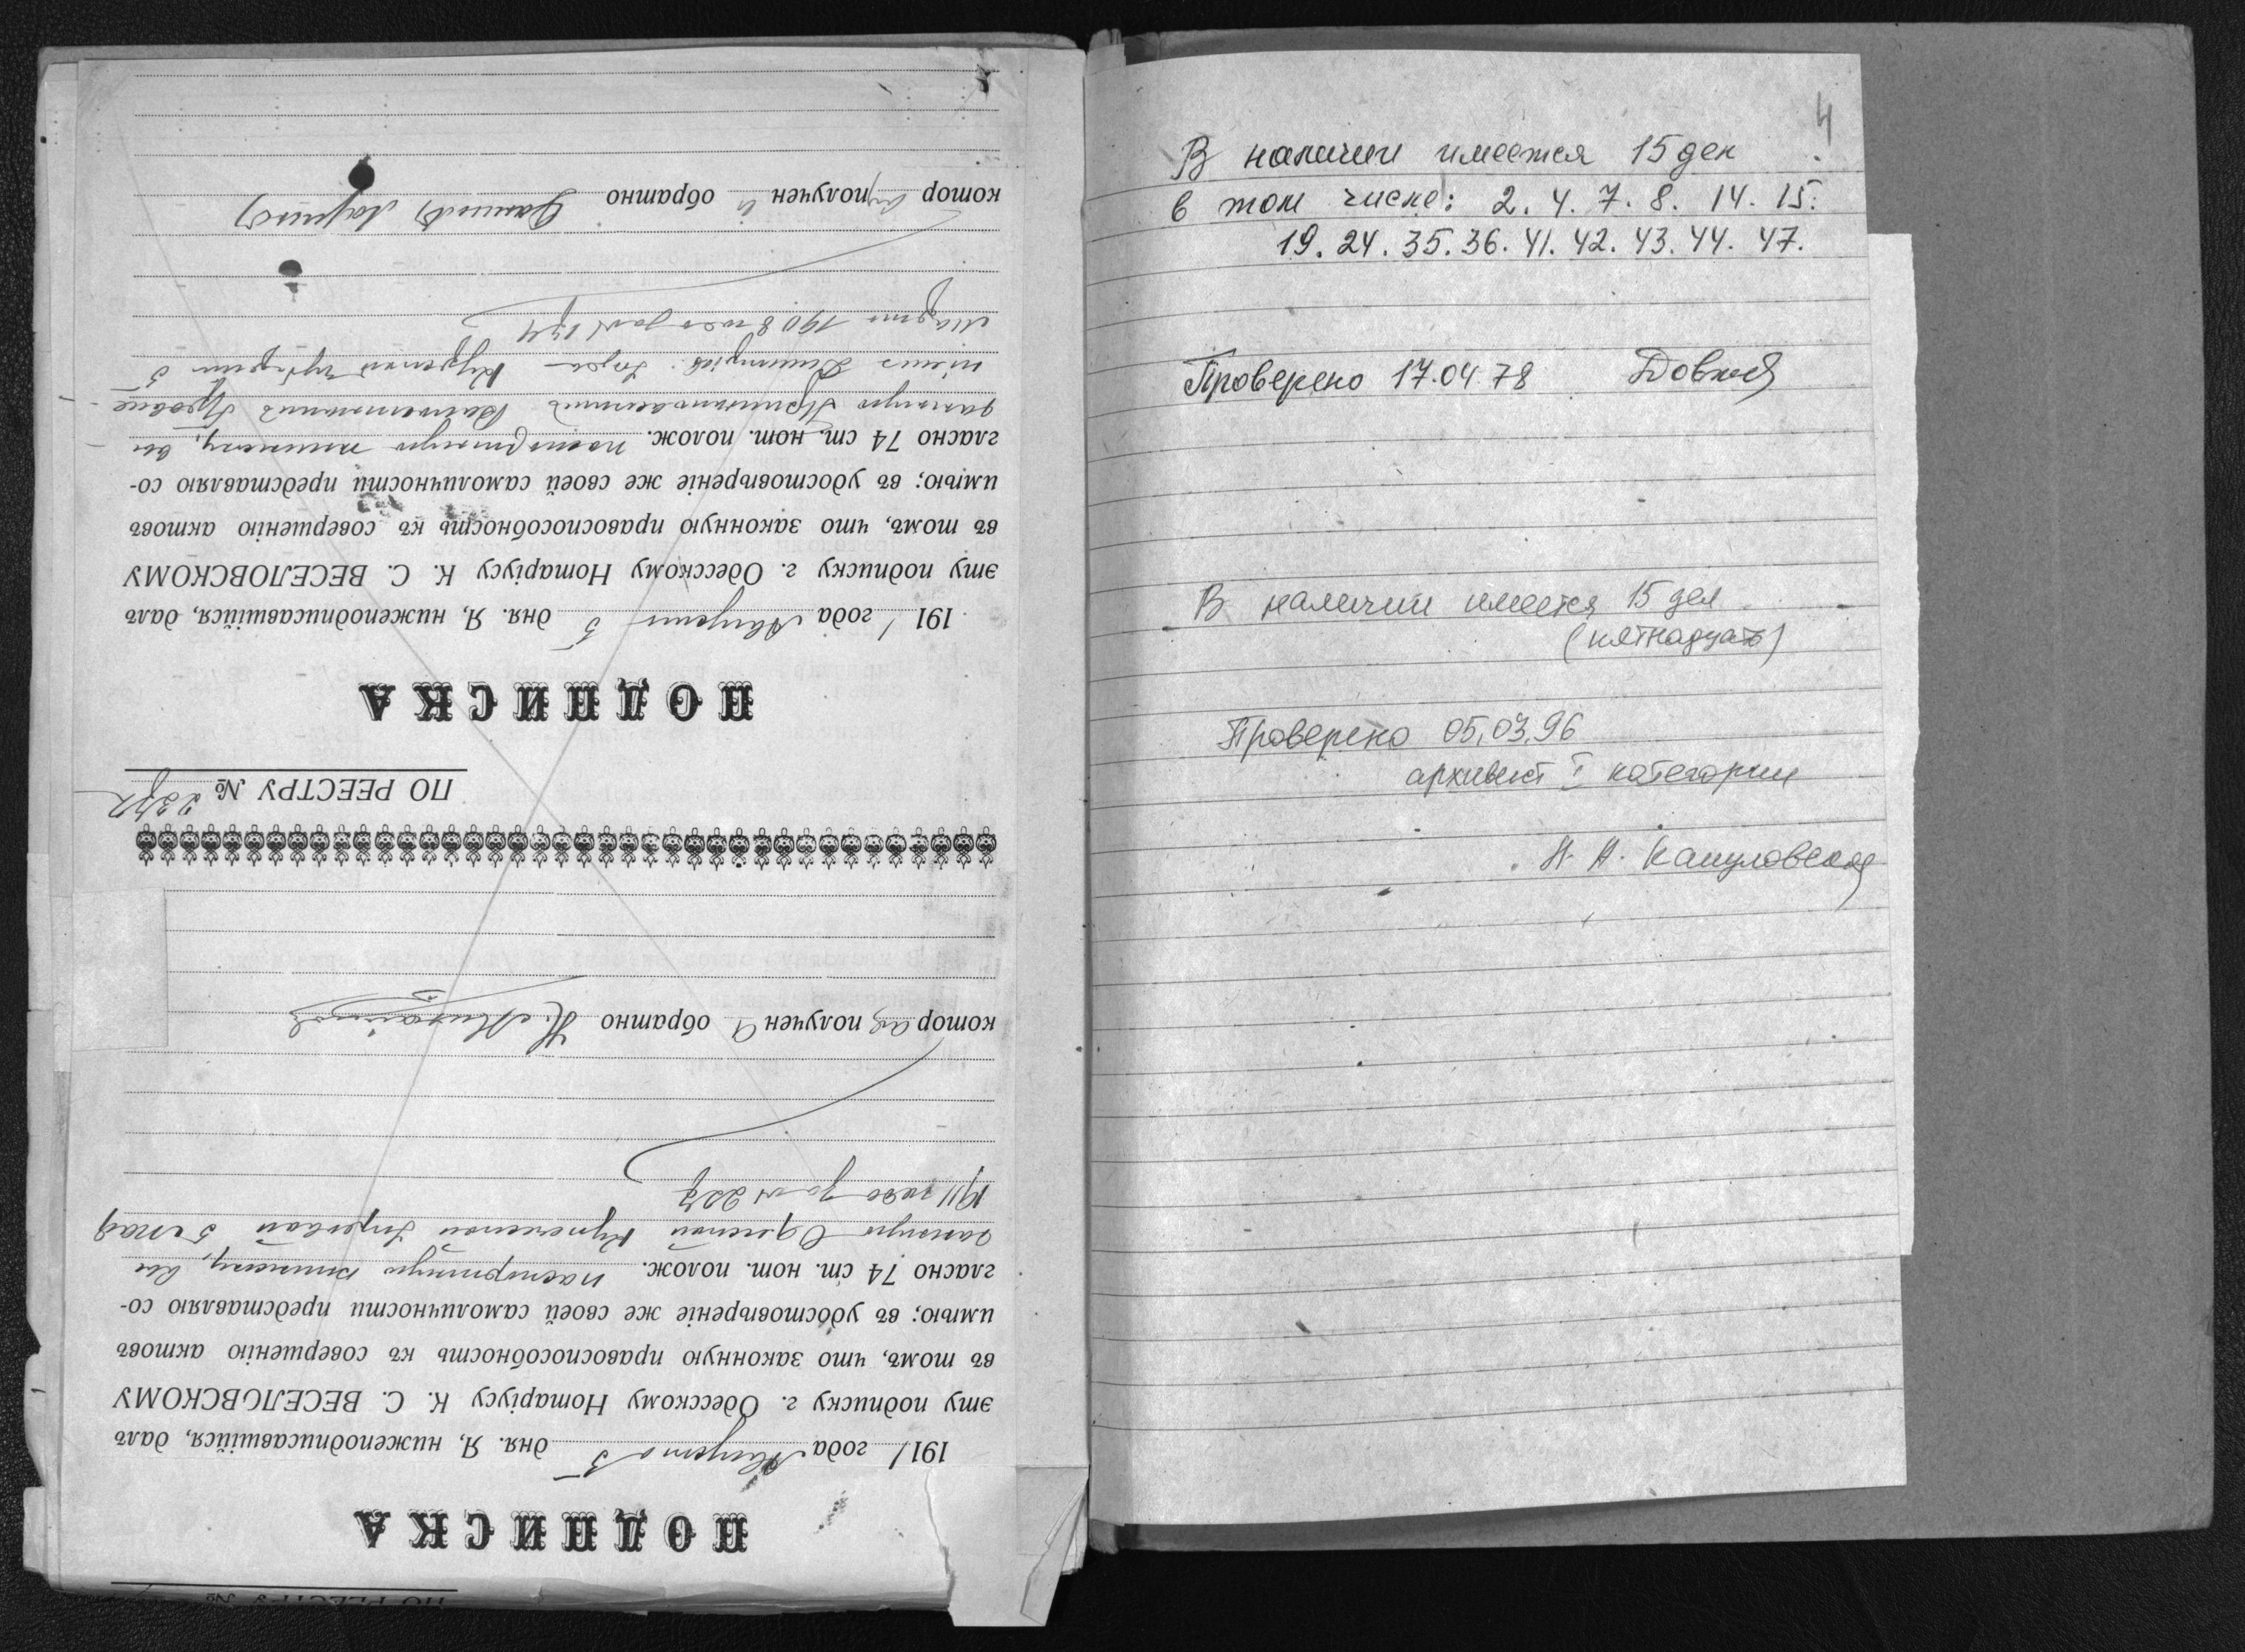 ПО РЕЕСТРУ №
ПОДПИСКА
191 1 года Августа 5 дня. Я, нижеподписавшійся, далъ
эту подписку г. Одесскому Нотаріусу К. С. ВЕСЕЛОВСКОМУ
въ томъ, что законную правоспособность къ совершенію актовъ
имѣю; въ удостовѣреніе же своей самоличности представляю со-
гласно 74 ст. нот. полож. паспортную книжку, вы
данную Одесской Купеческой Управой 5 мая
1911 года за №
котор ую получен обратно
ПО РЕЕСТРУ №
ПОДПИСКА
191 1 года Августа 5 дня. Я, нижеподписавшійся, далъ
эту подписку г. Одесскому Нотаріусу К. С. ВЕСЕЛОВСКОМУ
въ томъ, что законную правоспособность къ совершенію актовъ
имѣю; въ удостовѣреніе же своей самоличности представляю со-
гласно 74 ст. нот. полож. паспортную книжку, вы
данную Волостнымъ Правле
ніемъ 5
марта 1908 года за №
котор ую получен обратно
4
В наличии имеется 15 дел
в том числе: 2. 4. 7. 8. 14. 15.
19. 24. 35. 36. 41. 42. 43. 44. 47.
Проверено 17.04.78
В наличии имеется 15 дел
(пятнадцать)
Проверено 05.03.96
архивист I категории